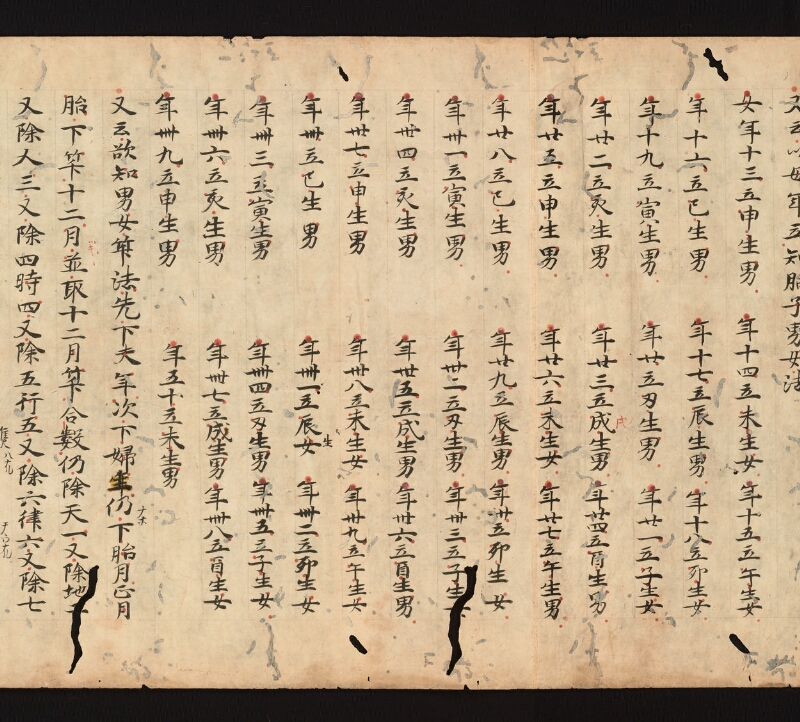 又云以母年立知胎子男女法
女年十三立申生男 年十四立未生女 年十五立午生女
年十六立巳生男 年十七立辰生男 年十八立卯生女
年十九立寅生男 年廿立丑生男 年廿一立子生女
年廿二立亥生男 年廿三立戌生男 年廿四立酉生男
年廿五立申生男 年廿六立未生女 年廿七立午生男
年廿八立巳生男 年廿九立辰生男 年卅立卯生女
年卅一立寅生男 年卅二立丑生男 年卅三立子生女
年卅四立亥生男 年卅五立戌生男 年卅六立酉生男
年卅七立申生男 年卅八立未生女 年卅九立午生女
年卌立巳生男 年卌一立辰生女 年卌二立卯生女
年卌三立寅生男 年卌四立丑生男 年卌五立子生女
年卌六立亥生男 年卌七立戌生男 年卌八立酉生女
年卌九立申生男 年五十立未生男
又云欲知男女筭法先下夫年次下婦年仍下胎月正月
胎下筭十二月並取十二月筭合數仍除天一又除地
又除人三又除四時四又除五行五又除六律六又除七